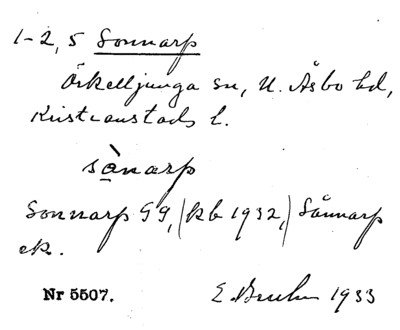 1-2, 5 Sonnarp
Örkelljunga sn, N. Åsbo hd,
Kristianstads l.
sànarp
Sonnarp G9, (kb 1932,) Sånnarp
ek.
Nr 5507. E. Bruhn 1933